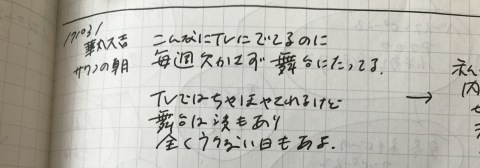 171031
華丸大吉
サワコの朝
こんなにTVにでてるのに
毎週欠かさず舞台にたってる.
TVではちやほやされるけど
舞台は波もあり
全くウケない日もある.
→
内